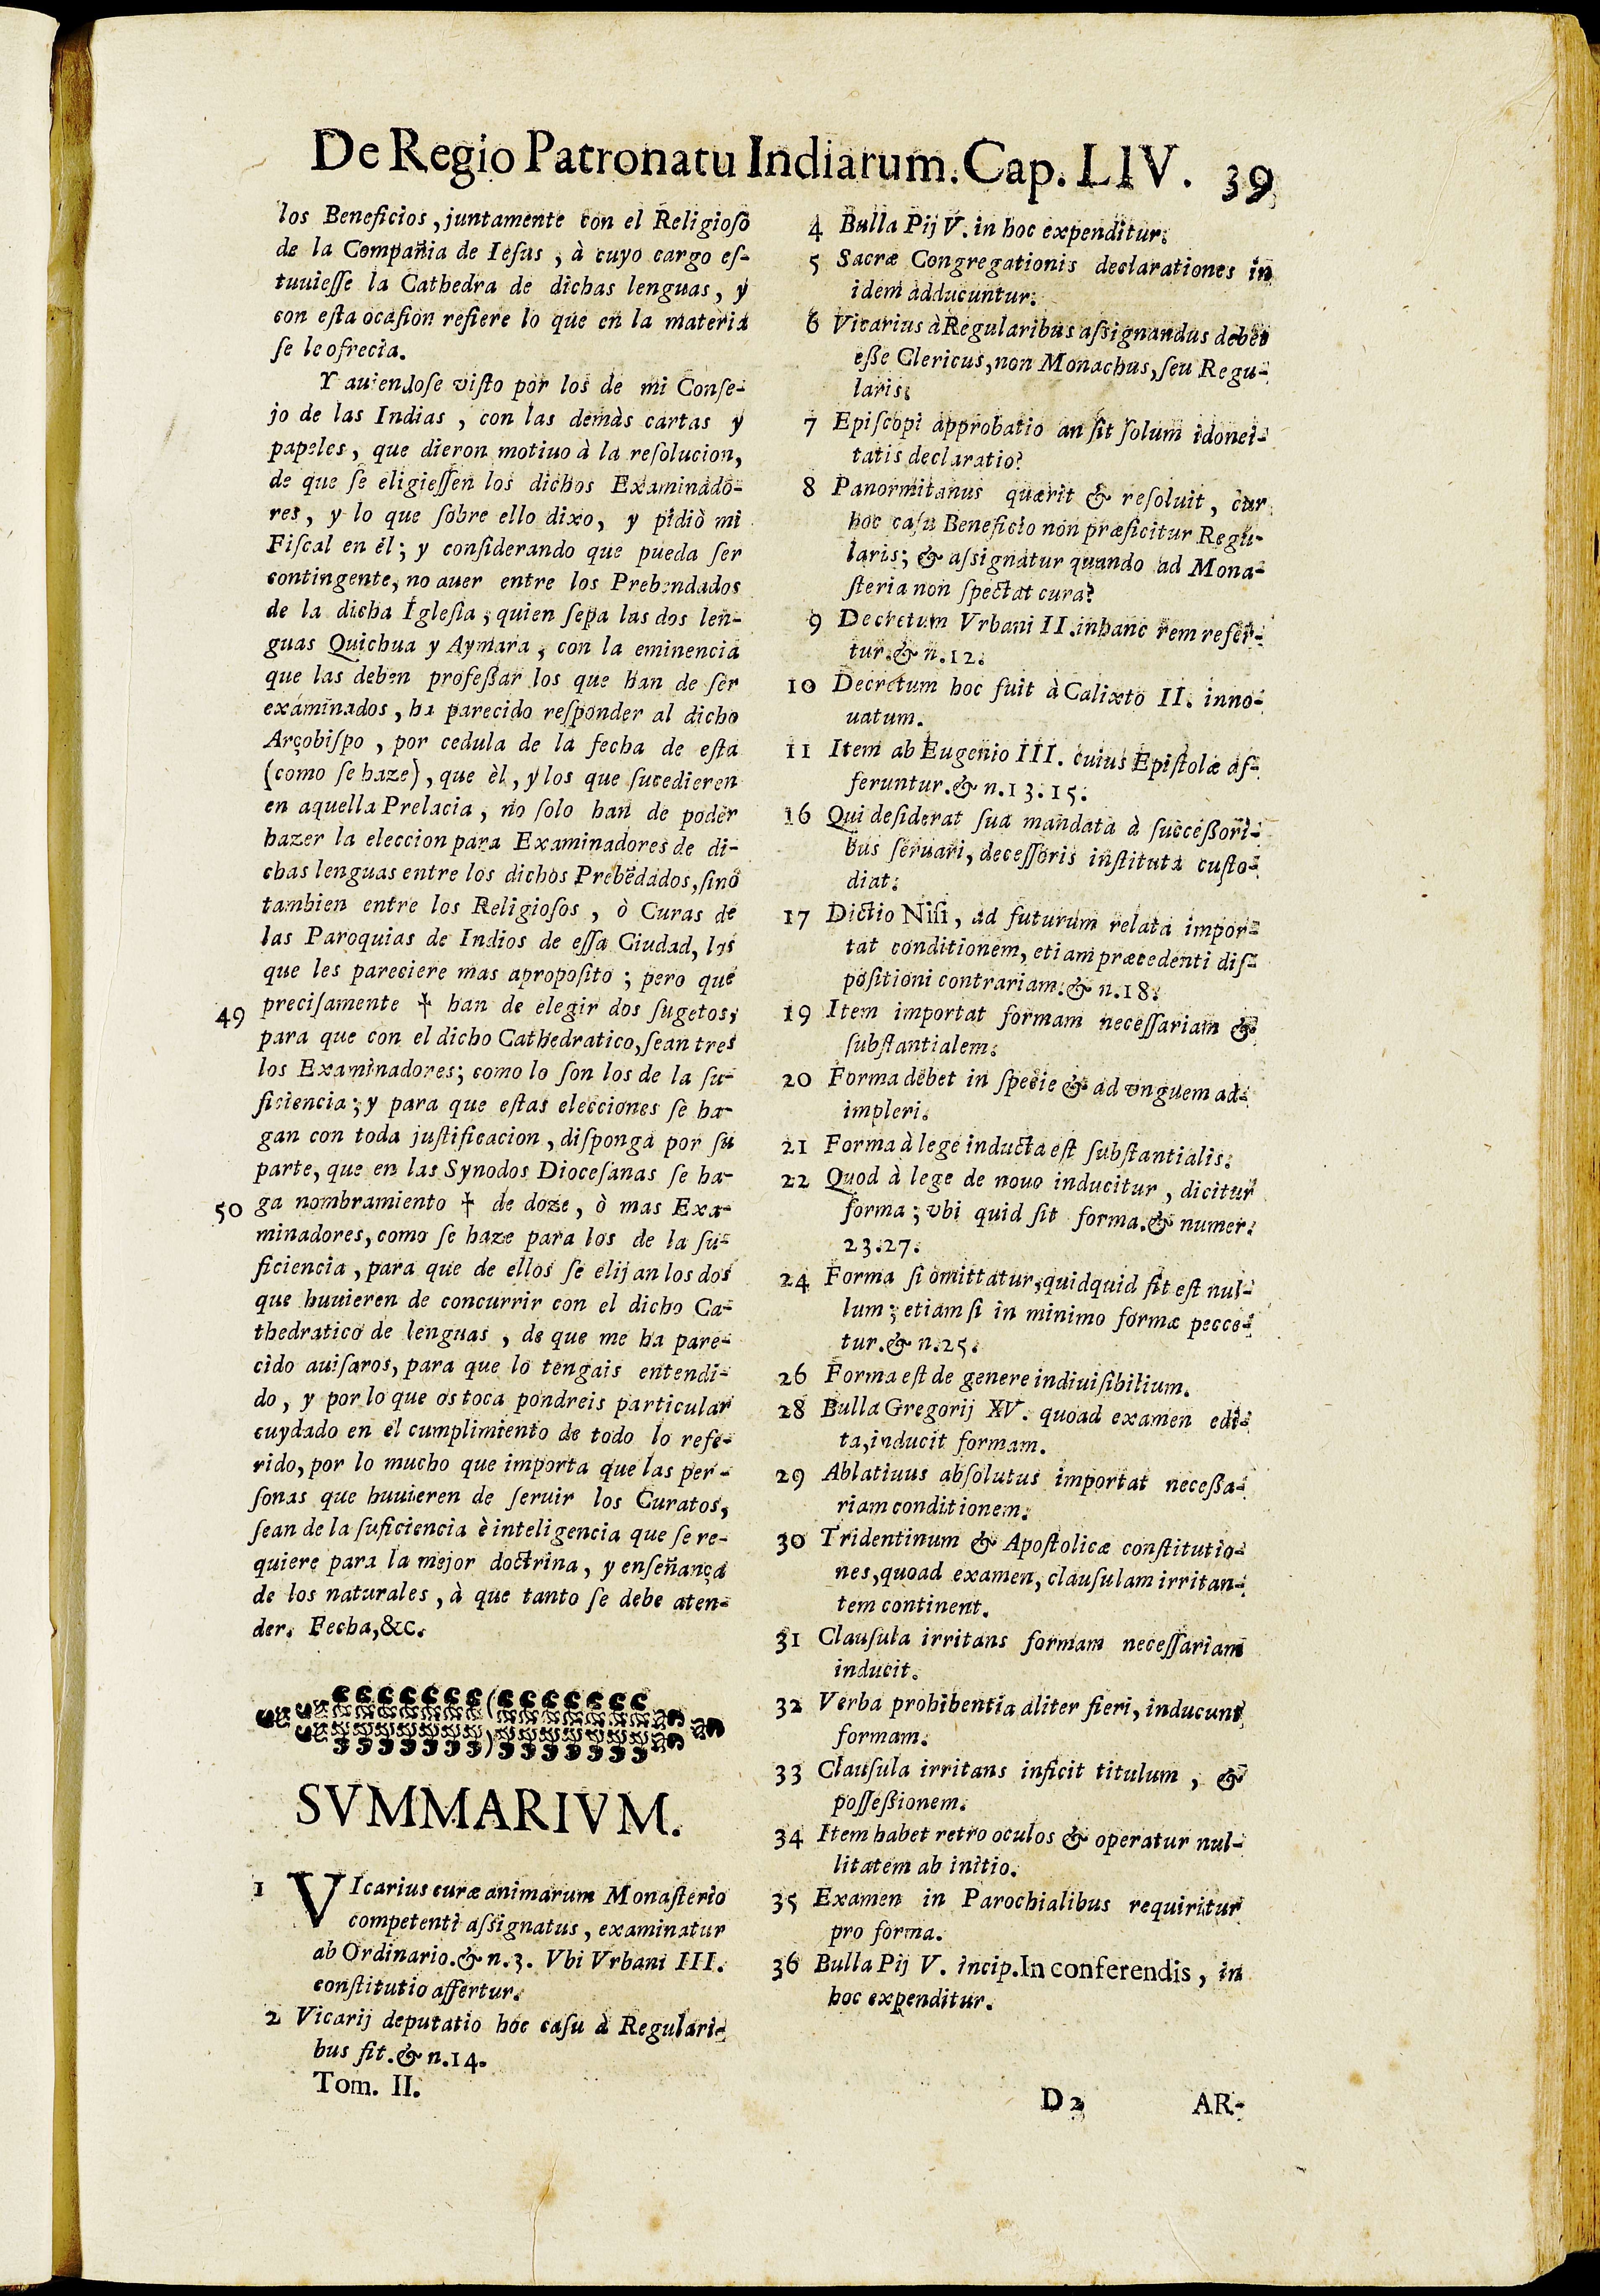 De Regio Patronatu Indiarum. Cap. LIV. 39
los Beneficios, juntamente con el Religioso
de la Compañia de Iesus, à cuyo cargo es-
tuuiesse la Cathedra de dichas lenguas, y
con esta ocasion refiere lo que en la materia
se le ofrecia.
Y auiendose visto por los de mi Conse-
jo de las Indias, con las demàs cartas y
papeles, que dieron motiuo à la resolucion,
de que se eligiessen los dichos Examinado-
res, y lo que sobre ello dixo, y pidiò mi
Fiscal en èl; y considerando que pueda ser
contingente, no auer entre los Prebendados
de la dicha Iglesia, quien sepa las dos len-
guas Quichua y Aymara, con la eminencia
que las deben professar los que han de ser
exáminados, ha parecido responder al dicho
Arçobispo, por cedula de la fecha de esta
(como se haze), que èl, y los que sucedieren
en aquella Prelacia, no solo han de poder
hazer la eleccion para Examinadores de di-
chas lenguas entre los dichos Prebẽdados, sino
tambien entre los Religiosos, ò Curas de
las Paroquias de Indios de essa Ciudad, los
que les pareciere mas aproposito; pero que
49 precisamente † han de elegir dos sugetos,
para que con el dicho Cathedratico, sean tres
los Examinadores; como lo son los de la su-
ficiencia; y para que estas elecciones se ha-
gan con toda justificacion, disponga por su
parte, que en las Synodos Diocesanas se ha-
50 ga nombramiento † de doze, ò mas Exa-
minadores, como se haze para los de la su-
ficiencia, para que de ellos se elijan los dos
que huuieren de concurrir con el dicho Ca-
thedratico de lenguas, de que me ha pare-
cido auisaros, para que lo tengais entendi-
do, y por lo que os toca pondreis particular
cuydado en el cumplimiento de todo lo refe-
rido, por lo mucho que importa que las per-
sonas que huuieren de seruir los Curatos,
sean de la suficiencia è inteligencia que se re-
quiere para la mejor doctrina, y enseñança
de los naturales, à que tanto se debe aten-
der. Fecha, &c.
SVMMARIVM.
1 VIcarius curæ animarum Monasterio
competenti assignatus, examinatur
ab Ordinario. & n.3. Vbi Vrbani III.
constitutio affertur.
2 Vicarij deputatio hoc casu à Regulari-
bus fit. & n.14.
Tom. II.
4 Bulla Pij V. in hoc expenditur.
5 Sacræ Congregationis declarationes in
idem adducuntur.
6 Vicarius à Regularibus assignandus debet
esse Clericus, non Monachus, seu Regu-
laris.
7 Episcopi approbatio an sit solum idonei-
tatis declaratio?
8 Panormitanus quærit & resoluit, cur
hoc casu Beneficio non præficitur Regu-
laris; & assignatur quando ad Mona-
steria non spectat cura?
9 Decretum Vrbani II. in hanc rem refer-
tur. & n.12.
10 Decretum hoc fuit à Calixto II. inno-
uatum.
11 Item ab Eugenio III. cuius Epistolæ af-
feruntur. & n.13.15.
16 Qui desiderat sua mandata à successori-
bus seruari, decessoris instituta custo-
diat.
17 Dictio Nisi, ad futurum relata impor-
tat conditionem, etiam præcedenti dis-
positioni contrariam. & n.18.
19 Item importat formam necessariam &
substantialem.
20 Forma debet in specie & ad vnguem ad-
impleri.
21 Forma à lege inducta est substantialis.
22 Quod à lege de nouo inducitur, dicitur
forma; vbi quid sit forma. & numer.
23.27.
24 Forma si omittatur, quidquid fit est nul-
lum; etiam si in minimo formæ pecce-
tur. & n.25.
26 Forma est de genere indiuisibilium.
28 Bulla Gregorij XV. quoad examen edi-
ta, inducit formam.
29 Ablatiuus absolutus importat necessa-
riam conditionem.
30 Tridentinum & Apostolicæ constitutio-
nes, quoad examen, clausulam irritan-
tem continent.
31 Clausula irritans formam necessariam
inducit.
32 Verba prohibentia aliter fieri, inducunt
formam.
33 Clausula irritans inficit titulum, &
possessionem.
34 Item habet retro oculos & operatur nul-
litatem ab initio.
35 Examen in Parochialibus requiritur
pro forma.
36 Bulla Pij V. incip. In conferendis, in
hoc expenditur.
D 2 AR-